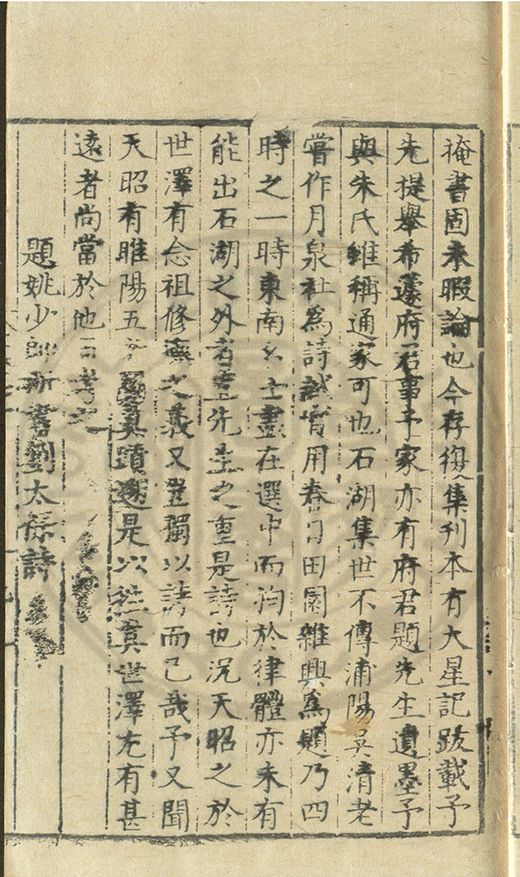 掩書固未暇論也今存復集刊本有大星記跋載予
先提舉希蘧府君事予家亦有府君題先生遺墨予
與朱氏雖稱通家可也石湖集世不傳浦陽吳清老
嘗作月泉社為詩試嘗用春日田園雜興為題乃四
時之一時東南名士盡在選中而拘於律體亦未有
能出石湖之外者先生之重是詩也況天昭之於
世澤有念祖修德之義又豈獨以詩而已哉予又聞
天昭有睢陽五真蹟是以往其世澤尤有甚
遠者尚當於他日考之
題姚少師所書劉太保詩